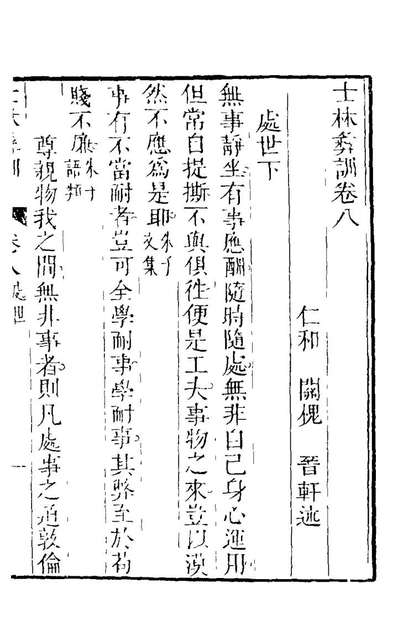 士林彞訓卷八
仁和　關槐　晉軒述
處世下
無事靜坐有事應酬隨時隨處無非自己身心運用
但常自提撕不與俱徃便是工夫事物之來豈以漠
然不應爲是耶朱子文集
事有不當耐者豈可全學耐事學耐事其弊至於苟
賤不廉朱子語類
尊親物我之間無非事者則凡處事之道敦倫
士林彞訓　卷八處世　一